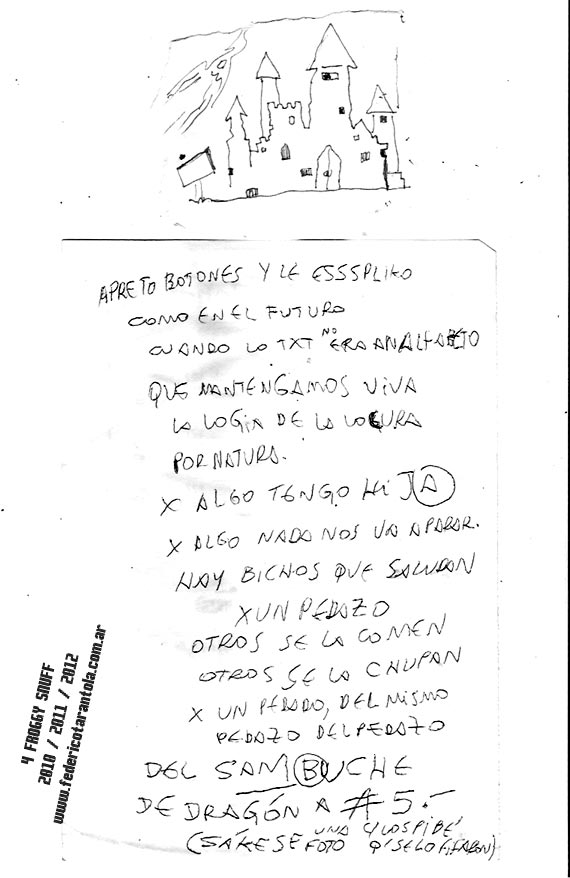 APRETO BOTONES Y LE ESSSPLIKO
COMO EN EL FUTURO
CUANDO LO TXT NO ERA ANALFABETO
QUE MANTENGAMOS VIVA
LA LOGIA DE LA LOCURA
POR NATURA.
X ALGO TENGO HIJA
X ALGO NADA NOS VA A PARAR.
HAY BICHOS QUE SALUDAN
X UN PEDAZO
OTROS SE LA COMEN
OTROS SE LA CHUPAN
X UN PEDADO, DEL MISMO
PEDAZO DEL PEDAZO
DEL SAMBUCHE
DE DRAGÓN A $ 5.-
(SÁKESE UNA FOTO Y LOS PIBE' Q' SE LO)
4 FROGGY SNUFF
2010 / 2011 / 2012
www.federicotarantola.com.ar